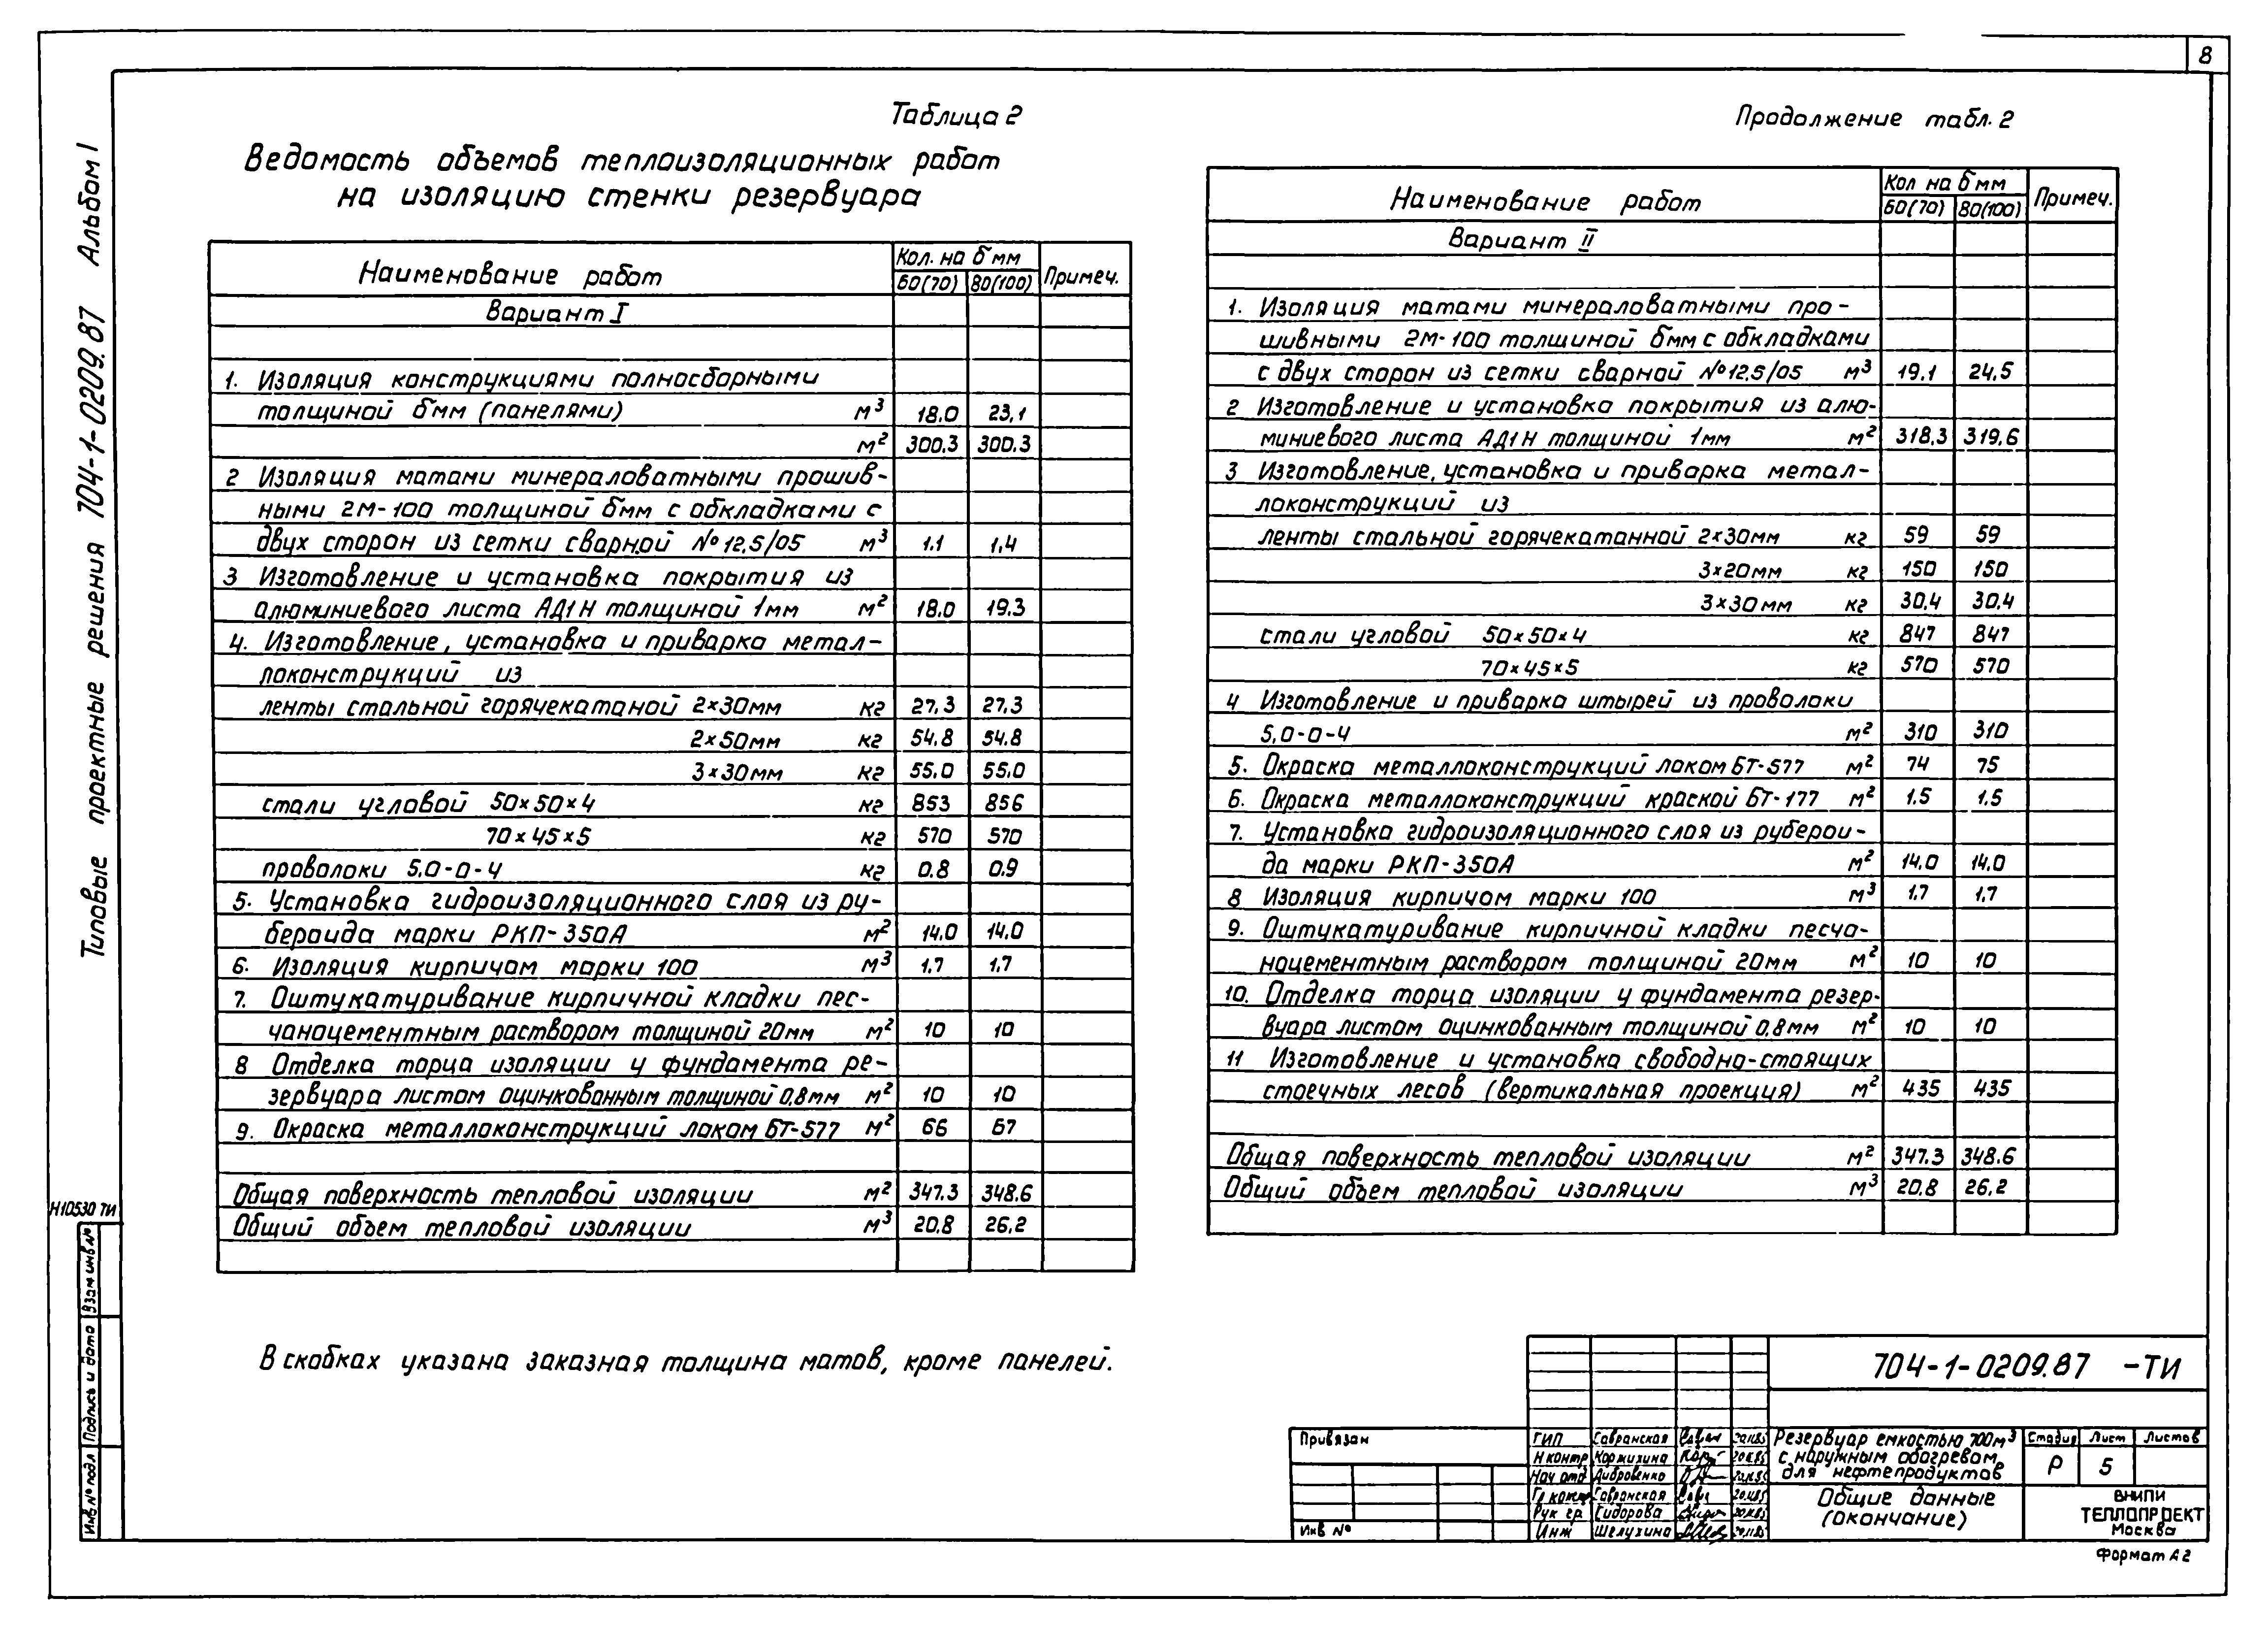 8
Типовые проектные решения 704-1-0209.87 Альбом I
Таблица 2
Ведомость объемов теплоизоляционных работ
на изоляцию стенки резервуара
Наименование работ Кол. на δ мм Примеч.
60(70) 80(100)
Вариант I
1. Изоляция конструкциями полносборными
толщиной δмм (панелями) м³ 18.0 23,1
м² 300.3 300.3
2 Изоляция матами минераловатными прошив-
ными 2М-100 толщиной δмм с обкладками с
двух сторон из сетки сварной №12,5/05 м³ 1.1 1,4
3 Изготовление и установка покрытия из
алюминиевого листа АД1Н толщиной 1мм м² 18.0 19.3
4. Изготовление, установка и приварка метал-
локонструкций из
ленты стальной горячекатаной 2×30мм кг 27.3 27.3
2×50мм кг 54.8 54.8
3×30мм кг 55.0 55.0
стали угловой 50×50×4 кг 853 856
70×45×5 кг 570 570
проволоки 5.0-0-4 кг 0.8 0.9
5. Установка гидроизоляционного слоя из ру-
бероида марки РКП-350А м² 14.0 14.0
6. Изоляция кирпичом марки 100 м³ 1.7 1.7
7. Оштукатуривание кирпичной кладки пес-
чаноцементным раствором толщиной 20мм м² 10 10
8 Отделка торца изоляции у фундамента ре-
зервуара листом оцинкованным толщиной 0,8мм м² 10 10
9. Окраска металлоконструкций лаком БТ-577 м² 66 67
Общая поверхность тепловой изоляции м² 347.3 348.6
Общий объем тепловой изоляции м³ 20.8 26.2
В скобках указана заказная толщина матов, кроме панелей.
Продолжение табл. 2
Наименование работ Кол на δ мм Примеч.
60(70) 80(100)
Вариант II
1. Изоляция матами минераловатными про-
шивными 2М-100 толщиной δмм с обкладками
с двух сторон из сетки сварной №12,5/05 м³ 19.1 24.5
2 Изготовление и установка покрытия из алю-
миниевого листа АД1Н толщиной 1мм м² 318,3 319,6
3 Изготовление, установка и приварка метал-
локонструкций из
ленты стальной горячекатанной 2×30мм кг 59 59
3×20мм кг 150 150
3×30мм кг 30.4 30.4
стали угловой 50×50×4 кг 847 847
70×45×5 кг 570 570
4 Изготовление и приварка штырей из проволоки
5,0-0-4 м² 310 310
5. Окраска металлоконструкций лаком БТ-577 м² 74 75
6. Окраска металлоконструкций краской БТ-177 м² 1.5 1.5
7. Установка гидроизоляционного слоя из руберои-
да марки РКП-350А м² 14.0 14.0
8 Изоляция кирпичом марки 100 м³ 1.7 1.7
9. Оштукатуривание кирпичной кладки песча-
ноцементным раствором толщиной 20мм м² 10 10
10. Отделка торца изоляции у фундамента резер-
вуара листом оцинкованным толщиной 0,8мм м² 10 10
11 Изготовление и установка свободно-стоящих
стоечных лесов (вертикальная проекция) м² 435 435
Общая поверхность тепловой изоляции м² 347.3 348.6
Общий объем тепловой изоляции м³ 20.8 26.2
Н10530 ТИ
Взам инв №
Подпись и дата
Инв № подл
704-1-0209.87 -ТИ
Привязан
Инв №
ГИП Савранская 20.11.85
Н контр Кормихина 20.11.85
Нач отд Дибровенко 20.11.85
Гл констр Савранская 20.11.85
Рук гр Сидорова 20.11.85
Инж Шелухина 20.11.85
Резервуар емкостью 700м³
с наружным обогревом
для нефтепродуктов
Стадия Лист Листов
Р 5
Общие данные
(окончание)
ВНИПИ
ТЕПЛОПРОЕКТ
Москва
Формат А2